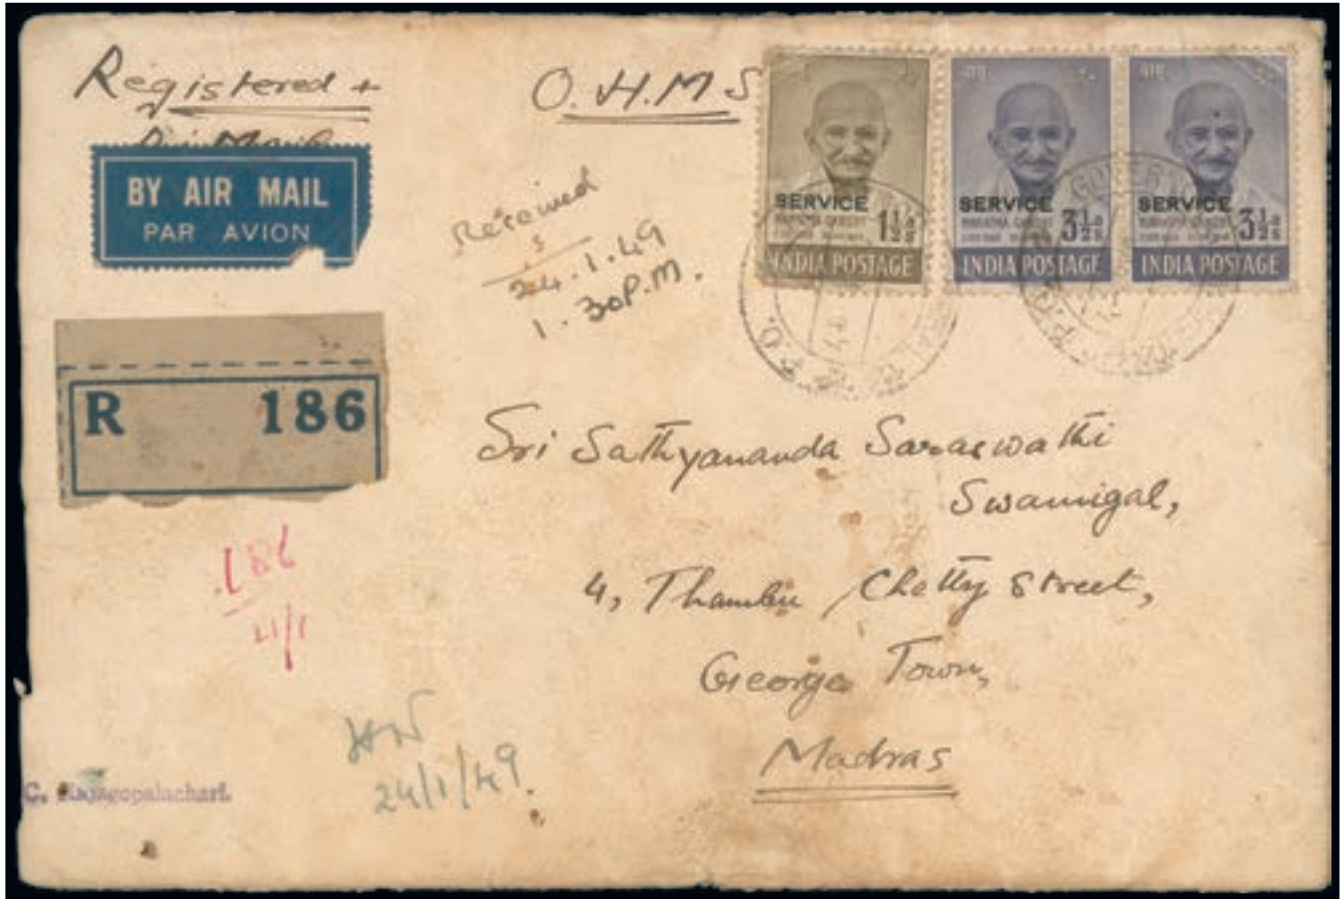 Registered +
Air Mail
O.H.M.S
BY AIR MAIL
PAR AVION
Received
24.1.49
1.30P.M.
SERVICE
1½As
INDIA POSTAGE
बापू
SERVICE
3½As
INDIA POSTAGE
बापू
SERVICE
3½As
INDIA POSTAGE
R 186
Sri Sathyananda Saraswathi
Swamigal,
4, Thambu Chetty Street,
George Town,
Madras
186
24/1/49.
C. Rajagopalachari.